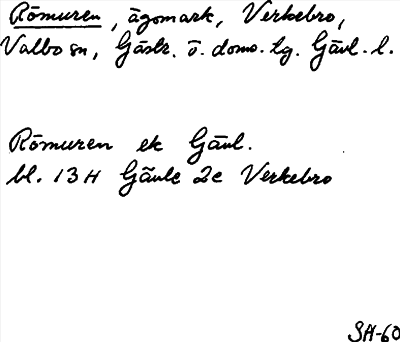 Römuren, ägomark, Verkebro,
Valbo sn, Gästr. ö. doms. lg. Gävl. l.
Römuren ek Gävl.
bl. 13H Gävle 2c Verkebro
SH-60